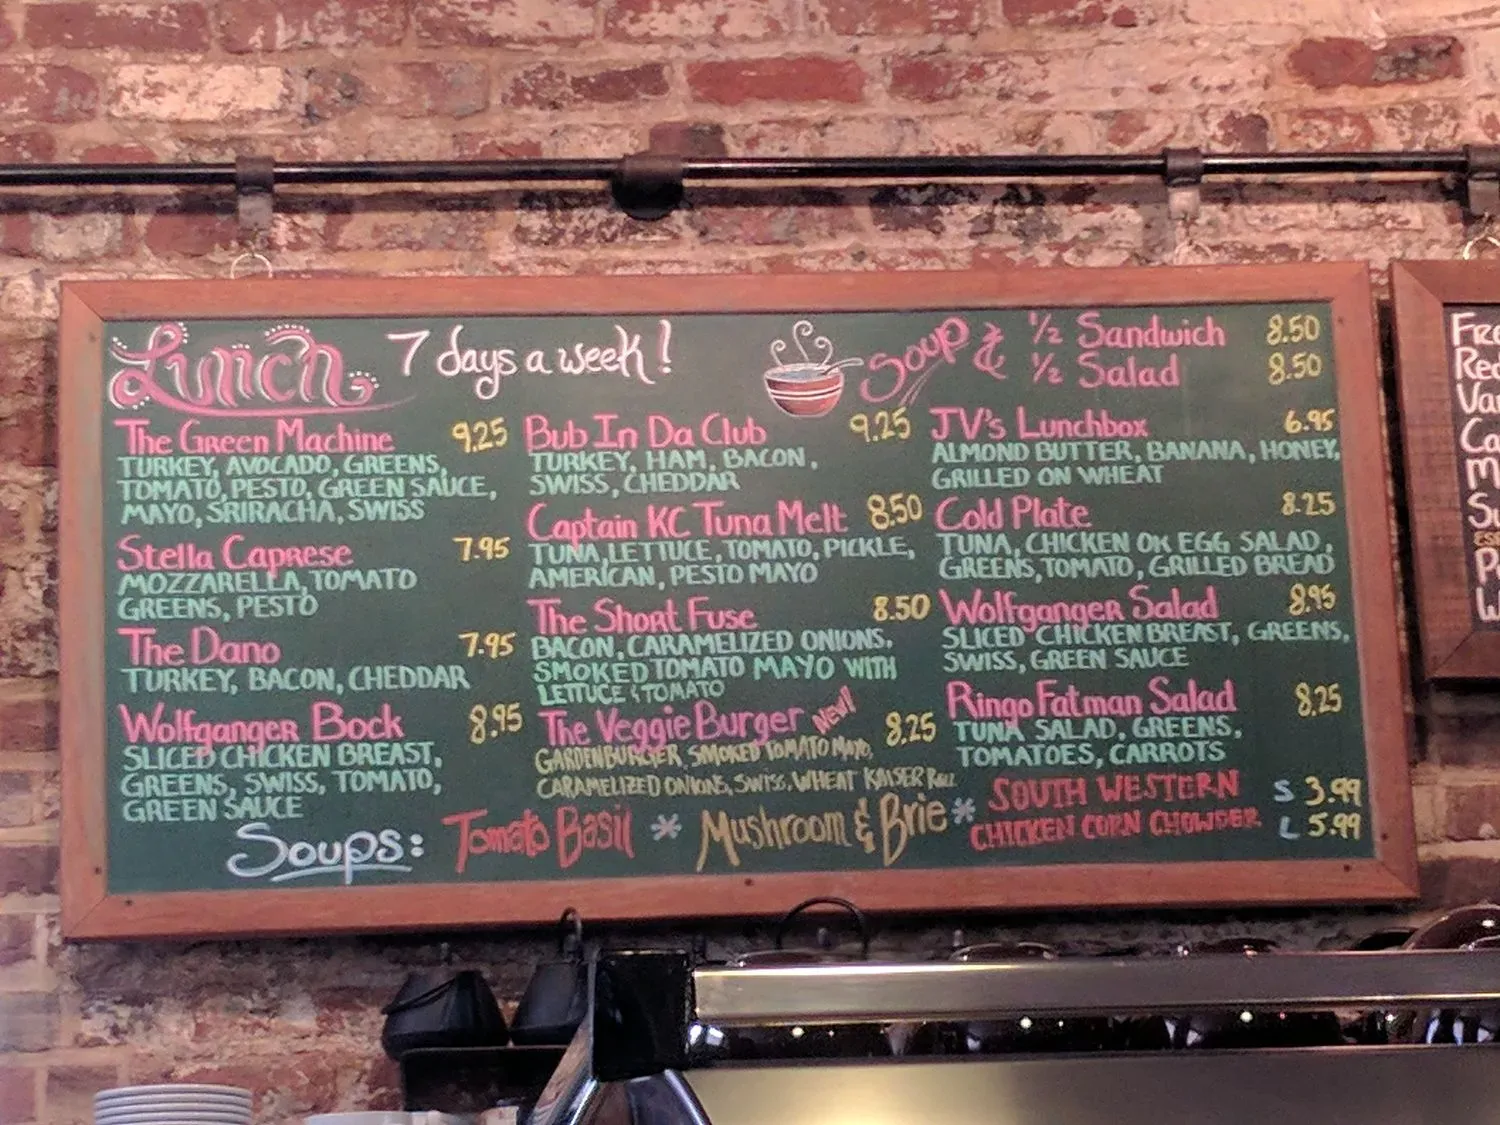 Lunch 7 days a week!
Soup & 1/2 Sandwich 8.50
1/2 Salad 8.50
The Green Machine 9.25
TURKEY, AVOCADO, GREENS,
TOMATO, PESTO, GREEN SAUCE,
MAYO, SRIRACHA, SWISS
Stella Caprese 7.95
MOZZARELLA, TOMATO
GREENS, PESTO
The Dano 7.95
TURKEY, BACON, CHEDDAR
Wolfganger Bock 8.95
SLICED CHICKEN BREAST,
GREENS, SWISS, TOMATO,
GREEN SAUCE
Bub In Da Club 9.25
TURKEY, HAM, BACON,
SWISS, CHEDDAR
Captain KC Tuna Melt 8.50
TUNA, LETTUCE, TOMATO, PICKLE,
AMERICAN, PESTO MAYO
The Short Fuse 8.50
BACON, CARAMELIZED ONIONS,
SMOKED TOMATO MAYO WITH
LETTUCE & TOMATO
The Veggie Burger New! 8.25
GARDENBURGER, SMOKED TOMATO MAYO,
CARAMELIZED ONIONS, SWISS, WHEAT KAISER ROLL
JV's Lunchbox 6.95
ALMOND BUTTER, BANANA, HONEY,
GRILLED ON WHEAT
Cold Plate 8.25
TUNA, CHICKEN OR EGG SALAD,
GREENS, TOMATO, GRILLED BREAD
Wolfganger Salad 8.95
SLICED CHICKEN BREAST, GREENS,
SWISS, GREEN SAUCE
Ringo Fatman Salad 8.25
TUNA SALAD, GREENS,
TOMATOES, CARROTS
Soups: Tomato Basil * Mushroom & Brie *
SOUTH WESTERN S 3.99
CHICKEN CORN CHOWDER L 5.99